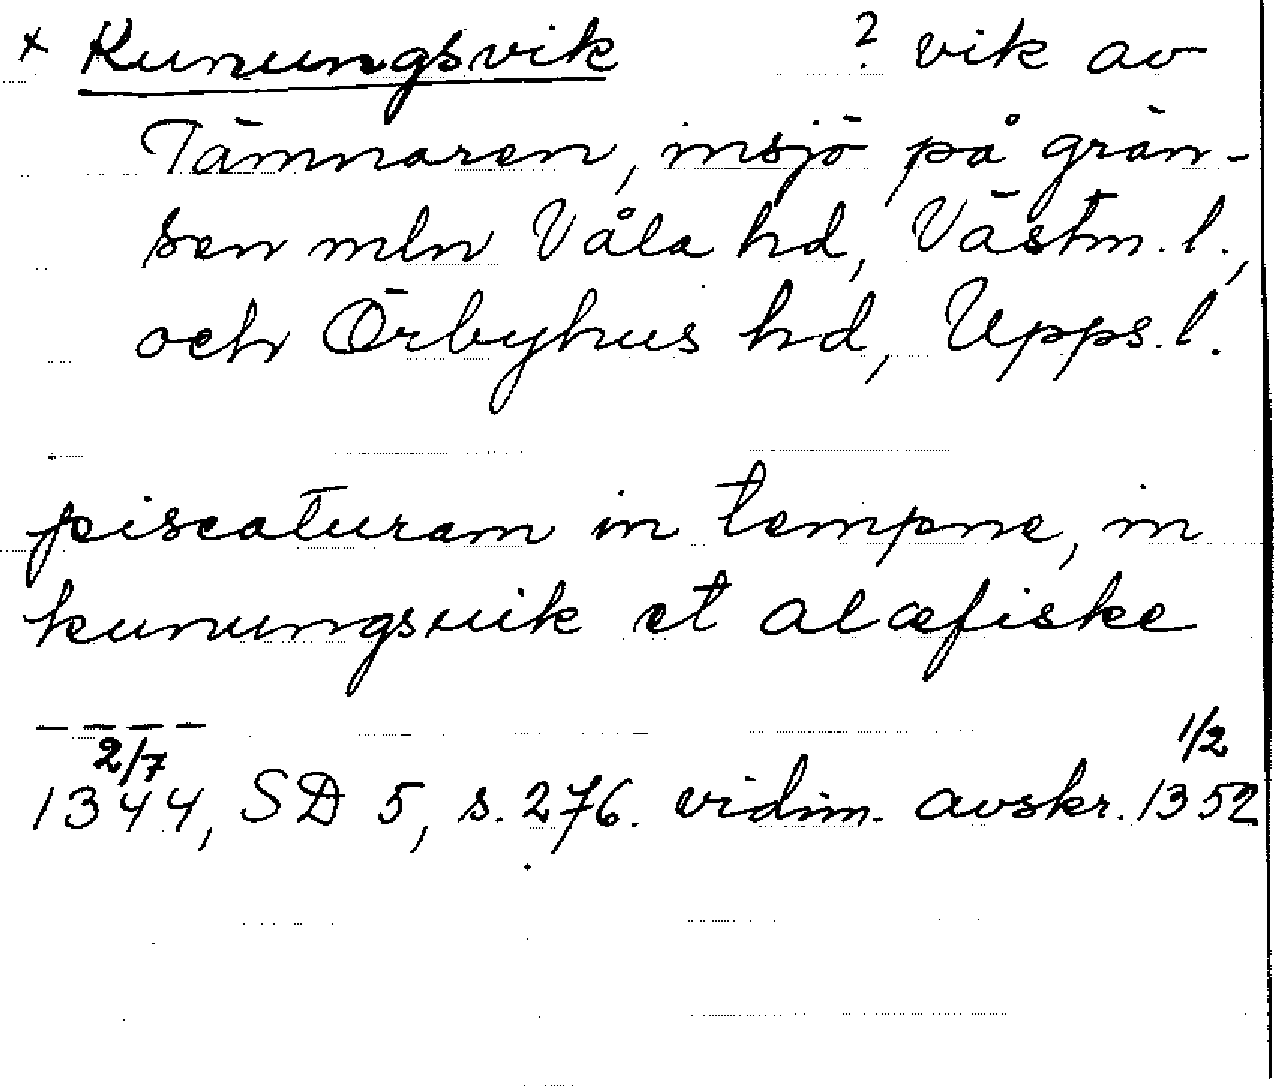 x Kunungsvik ? vik av
Tämnaren, insjö på grän-
sen mln Våla hd, Västm. l.,
och Örbyhus hd, Upps. l.
piscaturam in tempne, in
kunungsuik et alæfiske
– – – –
2/7 1/2
1344, SD 5, s. 276. vidim. avskr. 1352